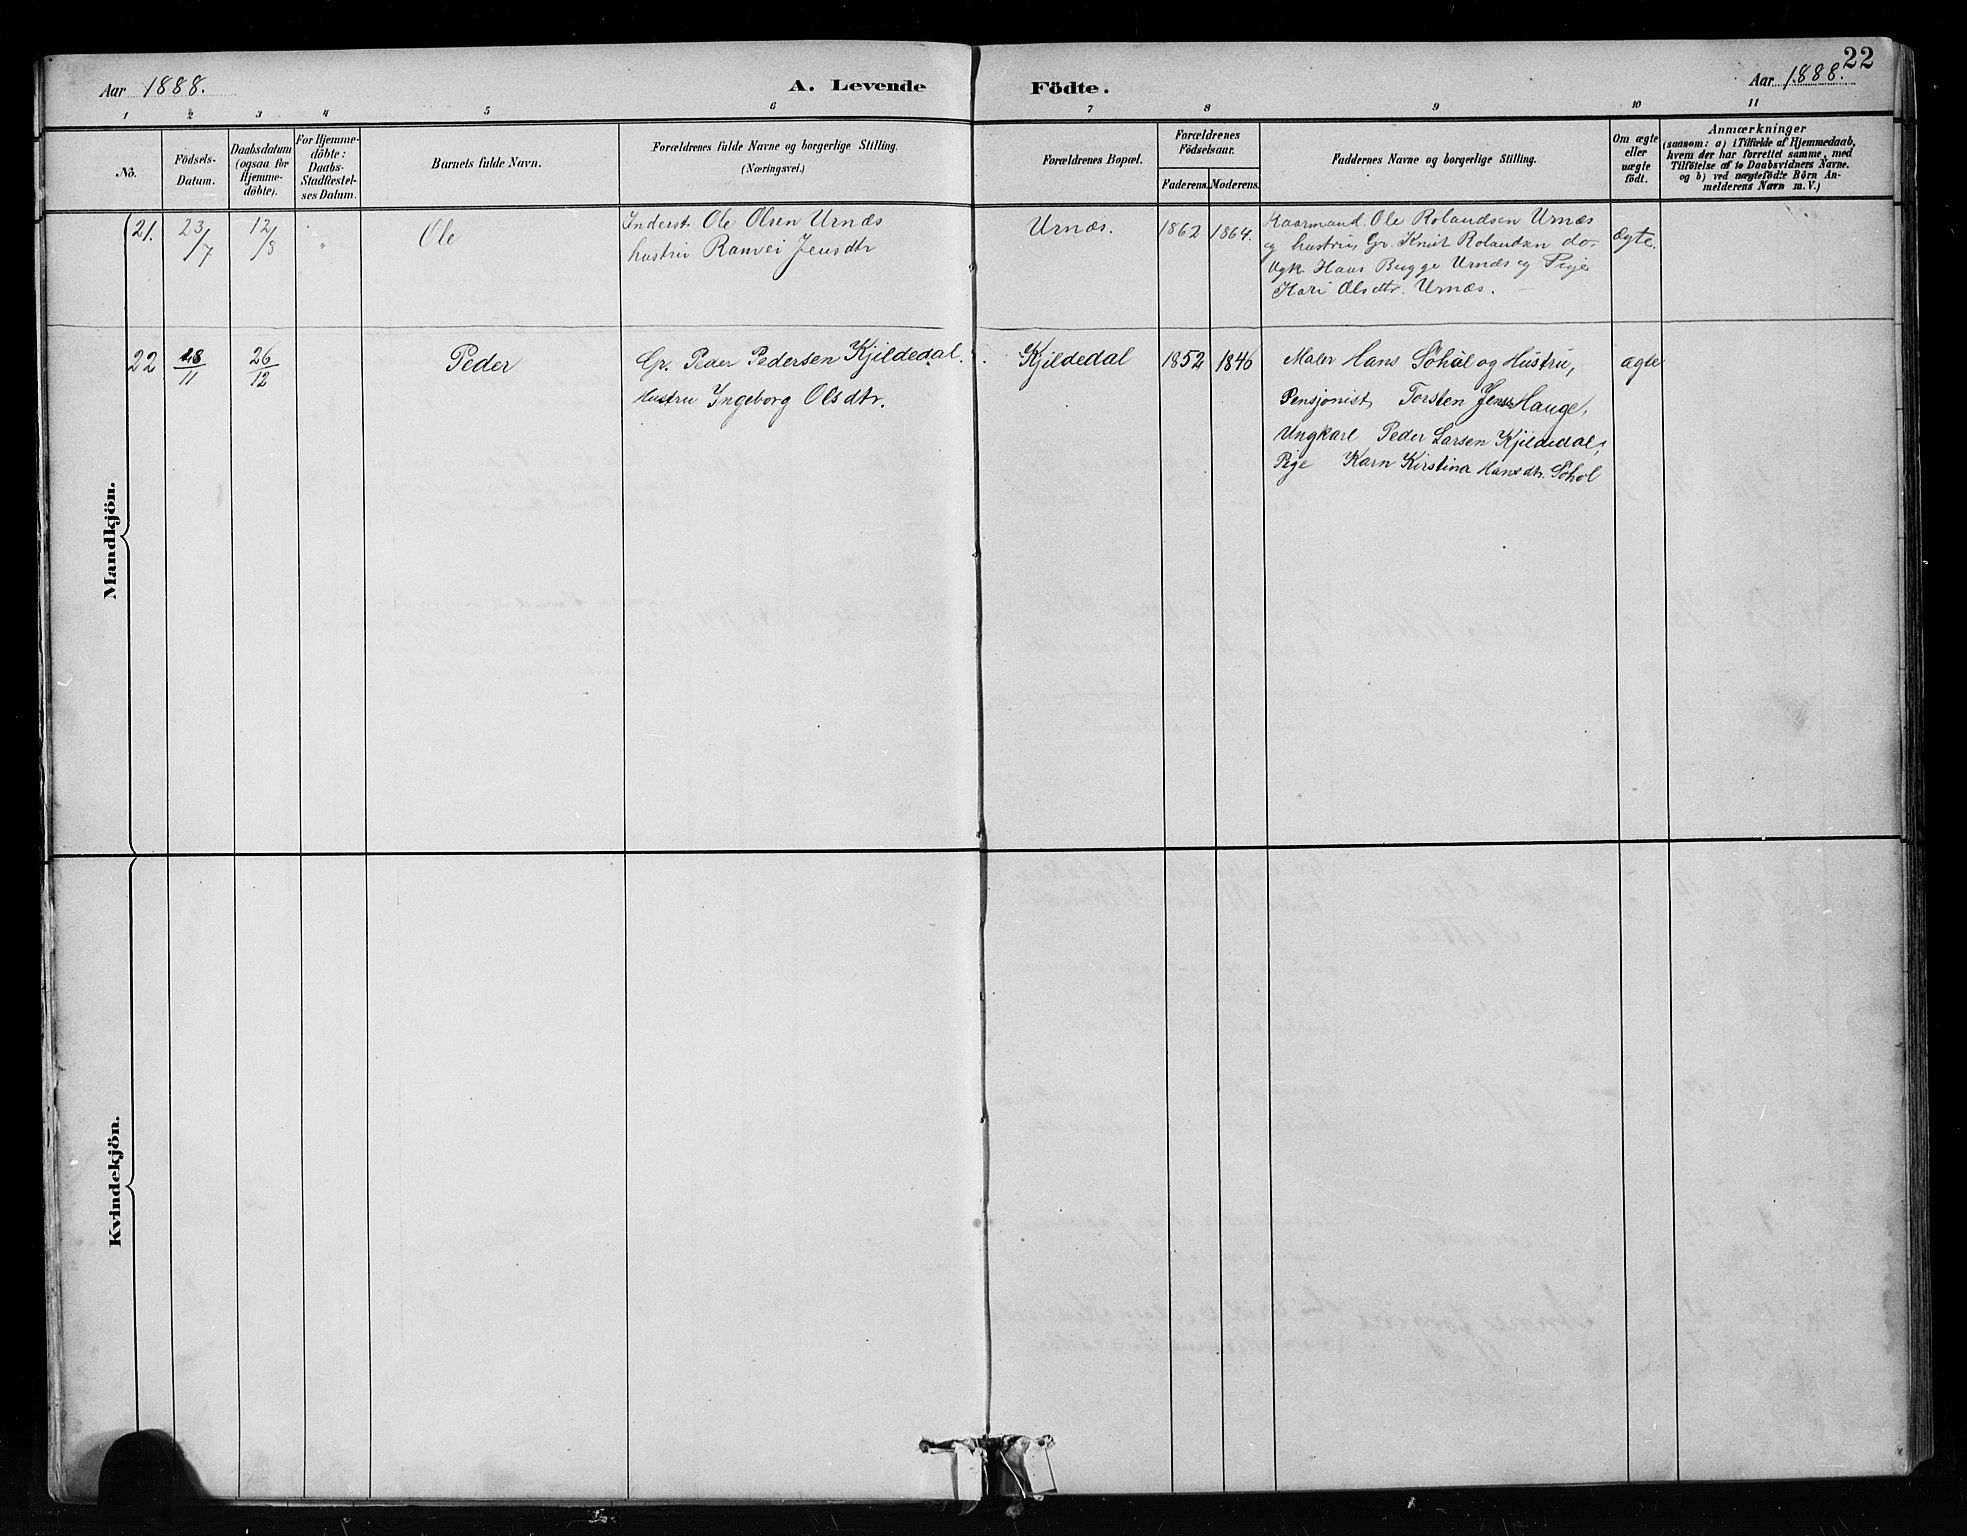 22
Aar 1888.
A. Levende Födte.
Aar 1888.
1 2 3 4 5 6 7 8 9 10 11
No.
Födsels-Datum.
Daabsdatum (ogsaa for Hjemme-döbte).
For Hjemme-döbte: Daabs-Stadfestel-ses Datum.
Barnets fulde Navn.
Forældrenes fulde Navne og borgerlige Stilling.
(Næringsvei.)
Forældrenes Bopæl.
Forældrenes Födselsaar.
Faderens. Moderens.
Faddernes Navne og borgerlige Stilling.
Om ægte eller uægte födt.
Anmærkninger
(saasom: a) i Tilfælde af Hjemmedaab,
hvem der har forrettet samme, med
Tilföielse af to Daabsvidners Navne.
og b) ved uægtefödte Börn An-
melderens Navn m. V.)
Mandkjön.
21. 23/7 12/8 " Ole
Inderst Ole Olsen Urnæs
hustru Ranvei Jensdtr
Urnæs. 1862 1864.
Kaarmand Ole Rolandsen Urnæs
og hustru, Gr. Knut Rolandsen do-
Ugk. Hans Bugge Urnæs og Pige
Kari Olsdtr. Urnæs.
Ægte.
22 28/11 26/12 Peder
Gr. Peder Pedersen Kjildedal.
Hustru Ingeborg Olsdtr.
Kjildedal 1852 1846
Maler Hans Söhol og Hustru,
Pensjonist Torsten Jens Hauge,
Ungkarl Peder Larsen Kjildedal,
Pige Karn Kirstina Hansdtr. Söhol
ægte
Kvindekjön.